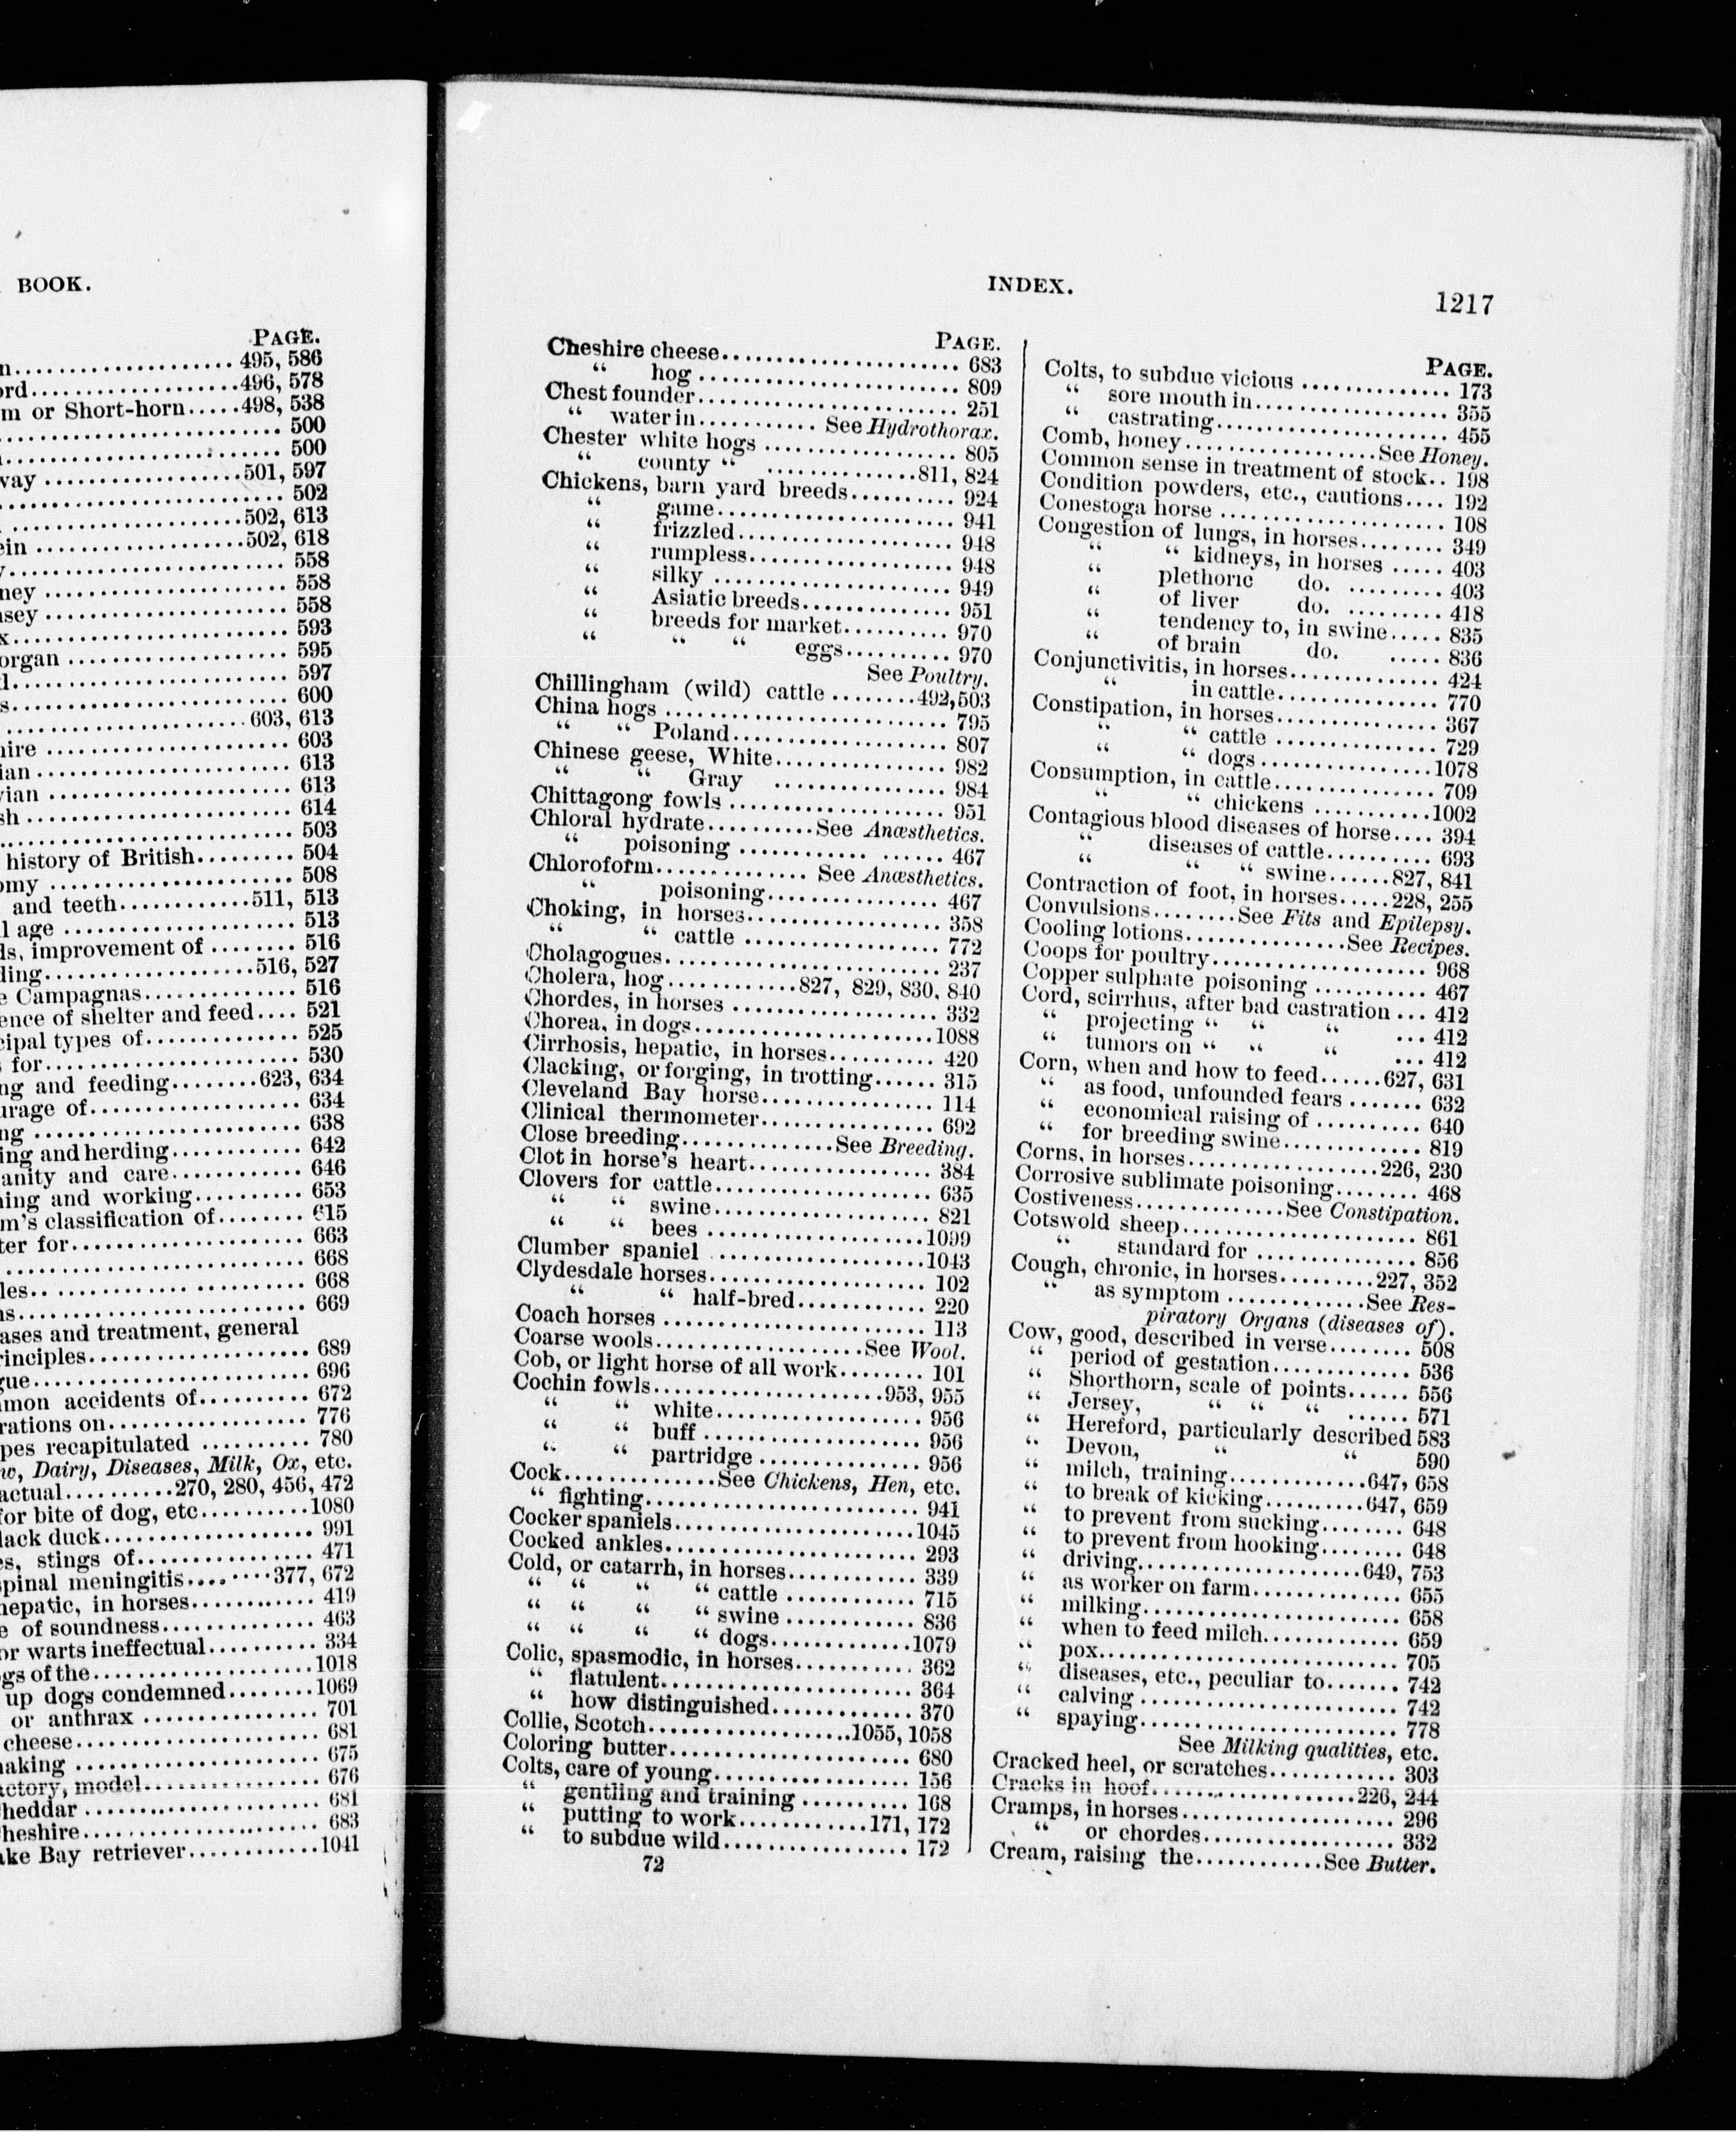 BOOK.
PAGE.
n.................... 495, 586
ord...................496, 578
m or Short-horn.....498, 538
............................ 500
............................ 500
way ..................501, 597
............................ 502
.......................502, 613
ein ...................502, 618
............................ 558
ney ....................... 558
sey ........................ 558
x........................... 593
organ ..................... 595
d........................... 597
s............................ 600
.......................603, 613
hire ....................... 603
ian ........................ 613
vian ....................... 613
sh ......................... 614
............................ 503
history of British......... 504
omy ....................... 508
and teeth............511, 513
l age ...................... 513
ds, improvement of ........ 516
ding....................516, 527
e Campagnas.............. 516
ence of shelter and feed.... 521
cipal types of.............. 525
s for........................ 530
ng and feeding........623, 634
urage of.................... 634
ng .......................... 638
ing and herding............ 642
anity and care............. 646
ning and working.......... 653
m's classification of........ 615
ter for...................... 663
............................ 668
les......................... 668
ns........................... 669
ases and treatment, general
rinciples..................... 689
gue.......................... 696
mmon accidents of.......... 672
rations on................... 776
pes recapitulated .......... 780
w, Dairy, Diseases, Milk, Ox, etc.
actual..........270, 280, 456, 472
for bite of dog, etc..........1080
lack duck.................... 991
es, stings of................. 471
spinal meningitis........377, 672
hepatic, in horses............ 419
e of soundness............... 463
or warts ineffectual........... 334
gs of the.....................1018
up dogs condemned........1069
or anthrax ................. 701
cheese....................... 681
aking ....................... 675
actory, model................ 676
heddar ...................... 681
heshire...................... 683
ake Bay retriever............1041
INDEX.
1217
PAGE.
Cheshire cheese....................... 683
“ hog ......................... 809
Chest founder......................... 251
“ water in........... See Hydrothorax.
Chester white hogs ................... 805
“ county “ ..............811, 824
Chickens, barn yard breeds.......... 924
“ game....................... 941
“ frizzled..................... 948
“ rumpless................... 948
“ silky ....................... 949
“ Asiatic breeds.............. 951
“ breeds for market.......... 970
“ “ “ eggs.......... 970
See Poultry.
Chillingham (wild) cattle ........492,503
China hogs ........................... 795
“ “ Poland..................... 807
Chinese geese, White................. 982
“ “ Gray ................. 984
Chittagong fowls ..................... 951
Chloral hydrate..........See Anæsthetics.
“ poisoning ................... 467
Chloroform............... See Anæsthetics.
“ poisoning................. 467
Choking, in horses................... 358
“ “ cattle .................... 772
Cholagogues........................... 237
Cholera, hog............827, 829, 830, 840
Chordes, in horses .................... 332
Chorea, in dogs.......................1088
Cirrhosis, hepatic, in horses.......... 420
Clacking, or forging, in trotting...... 315
Cleveland Bay horse................. 114
Clinical thermometer................. 692
Close breeding..............See Breeding.
Clot in horse's heart................... 384
Clovers for cattle...................... 635
“ “ swine...................... 821
“ “ bees ......................1099
Clumber spaniel .....................1043
Clydesdale horses..................... 102
“ “ half-bred............ 220
Coach horses ......................... 113
Coarse wools....................See Wool.
Cob, or light horse of all work........ 101
Cochin fowls.......................953, 955
“ “ white.................... 956
“ “ buff ..................... 956
“ “ partridge................ 956
Cock..............See Chickens, Hen, etc.
“ fighting............................ 941
Cocker spaniels.......................1045
Cocked ankles......................... 293
Cold, or catarrh, in horses............ 339
“ “ “ “ cattle ............ 715
“ “ “ “ swine ............ 836
“ “ “ “ dogs.............1079
Colic, spasmodic, in horses........... 362
“ flatulent......................... 364
“ how distinguished............. 370
Collie, Scotch....................1055, 1058
Coloring butter....................... 680
Colts, care of young................... 156
“ gentling and training .......... 168
“ putting to work.............171, 172
“ to subdue wild.................. 172
72
PAGE.
Colts, to subdue vicious .............. 173
“ sore mouth in................... 355
“ castrating....................... 455
Comb, honey..................See Honey.
Common sense in treatment of stock.. 198
Condition powders, etc., cautions.... 192
Conestoga horse ...................... 108
Congestion of lungs, in horses........ 349
“ “ kidneys, in horses ..... 403
“ plethoric do. .......... 403
“ of liver do. .......... 418
“ tendency to, in swine..... 835
“ of brain do. ..... 836
Conjunctivitis, in horses.............. 424
“ in cattle................ 770
Constipation, in horses................ 367
“ “ cattle ................ 729
“ “ dogs.................1078
Consumption, in cattle................ 709
“ “ chickens ............1002
Contagious blood diseases of horse.... 394
“ diseases of cattle.......... 693
“ “ “ swine......827, 841
Contraction of foot, in horses.....228, 255
Convulsions........See Fits and Epilepsy.
Cooling lotions................See Recipes.
Coops for poultry...................... 968
Copper sulphate poisoning ........... 467
Cord, scirrhus, after bad castration ... 412
“ projecting “ “ “ ... 412
“ tumors on “ “ “ ... 412
Corn, when and how to feed......627, 631
“ as food, unfounded fears ....... 632
“ economical raising of .......... 640
“ for breeding swine............. 819
Corns, in horses...................226, 230
Corrosive sublimate poisoning........ 468
Costiveness...............See Constipation.
Cotswold sheep....................... 861
“ standard for ............... 856
Cough, chronic, in horses.........227, 352
“ as symptom .............See Res-
piratory Organs (diseases of).
Cow, good, described in verse........ 508
“ period of gestation.............. 536
“ Shorthorn, scale of points...... 556
“ Jersey, “ “ “ ...... 571
“ Hereford, particularly described 583
“ Devon, “ “ 590
“ milch, training.............647, 658
“ to break of kicking..........647, 659
“ to prevent from sucking........ 648
“ to prevent from hooking........ 648
“ driving......................649, 753
“ as worker on farm............... 655
“ milking.......................... 658
“ when to feed milch............. 659
“ pox.............................. 705
“ diseases, etc., peculiar to....... 742
“ calving .......................... 742
“ spaying.......................... 778
See Milking qualities, etc.
Cracked heel, or scratches............ 303
Cracks in hoof....................226, 244
Cramps, in horses..................... 296
“ or chordes................... 332
Cream, raising the............See Butter.